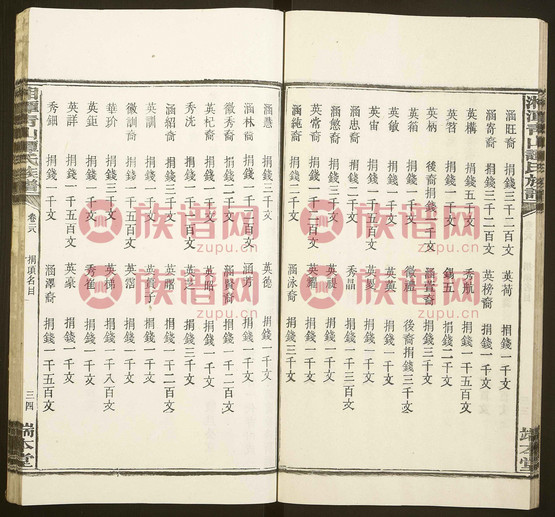 湘潭青山譚氏族譜
涵旺裔 捐錢三千二百文 英荷 捐錢一千文
涵寄裔 捐錢三千二百文 英榜裔 捐錢一千文
英構 捐錢五千文 秀航 捐錢一千文
英笤 捐錢一千文 錫五 捐錢二千文
英柄 後裔捐錢一千文 涵宣裔 捐錢三千文
英稻 捐錢一千文 徽禮 後裔捐錢三千文
英敏 捐錢一千文 英奠 捐錢一千文
英宙 捐錢一千文 英夏 捐錢一千文
涵忠裔 捐錢一千五百文 秀晶 捐錢一千三百文
涵悠裔 捐錢三千文 英禔 捐錢一千文
英常裔 捐錢三千文 英 捐錢一千文
涵純裔 捐錢二千文 涵泳裔 捐錢三千文
涵惠 捐錢一千文 英德 捐錢一千文
涵林裔 捐錢二千文 涵 捐錢一千文
徽秀裔 捐錢二千文 涵贊裔 捐錢一千二百文
英杞裔 捐錢三千文 英昭 捐錢一千文
秀洗 捐錢一千文 英 捐錢三千文
涵紹裔 捐錢三千文 英曙 捐錢一千二百文
英訓 捐錢一千文 英 子 捐錢一千文
徽訓裔 捐錢一千五百文 英當 捐錢一千文
華玠 捐錢三千文 英悌 捐錢一千八百文
英鉅 捐錢三千文 秀崔 捐錢一千文
英詳 捐錢一千五百文 英豪 捐錢一千文
秀鈿 捐錢一千文 涵澤裔 捐錢一千五百文
湘潭青山譚氏族譜 卷三 捐項名目 三四 端本堂
端本堂
族谱网
zupu.cn
族谱网
zupu.cn
族谱网
zupu.cn
族谱网
zupu.cn